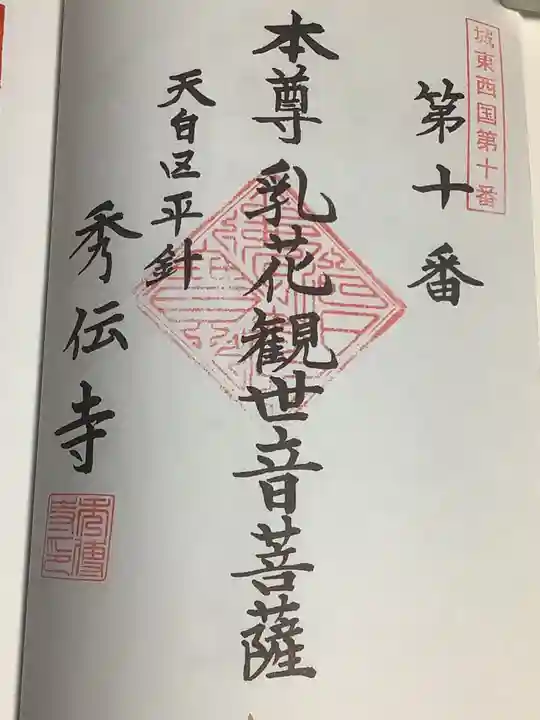 城東西国第十番
第十番
本尊 乳花観世音菩薩
天白区平針
秀伝寺
秀傳寺印